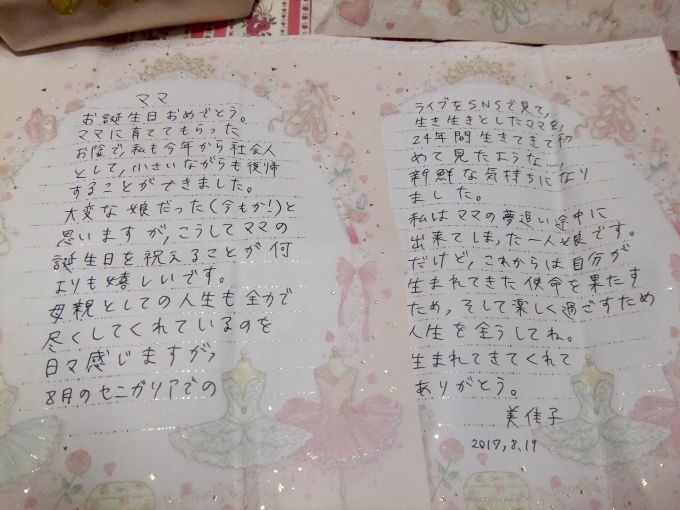 ママ
お誕生日おめでとう。
ママに育ててもらった
お陰で、私も今年から社会人
として、小さいながらも復帰
することができました。
大変な娘だった(今もか!)と
思いますが、こうしてママの
誕生日を祝えることが何
よりも嬉しいです。
母親としての人生も全力で
尽くしてくれているのを
日々感じますが、
8月のセニガリアでの
ライブをSNSで見て、
生き生きとしたママを、
24年間生きてきて初
めて見たような…、
新鮮な気持ちになり
ました。
私はママの夢追い途中に
出来てしまった一人娘です。
だけど、これからは自分が
生まれてきた使命を果たす
ため、そして楽しく過ごすため
人生を全うしてね。
生まれてきてくれて
ありがとう。
美佳子
2017,8,19